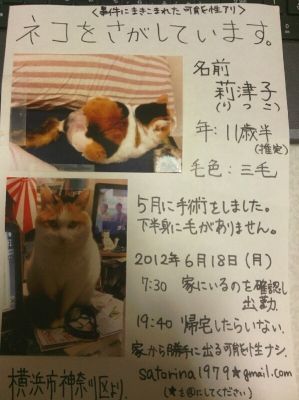 <事件にまきこまれた可能性アリ>
ネコをさがしています。
名前
莉津子
(りつこ)
年:11歳半
(推定)
毛色:三毛
5月に手術をしました。
下半身に毛がありません。
2012年6月18日(月)
7:30 家にいるのを確認し
出勤
19:40 帰宅したらいない。
家から勝手に出る可能性ナシ.
satorina1979★gmail.com
(★を@にしてください)
横浜市神奈川区より.